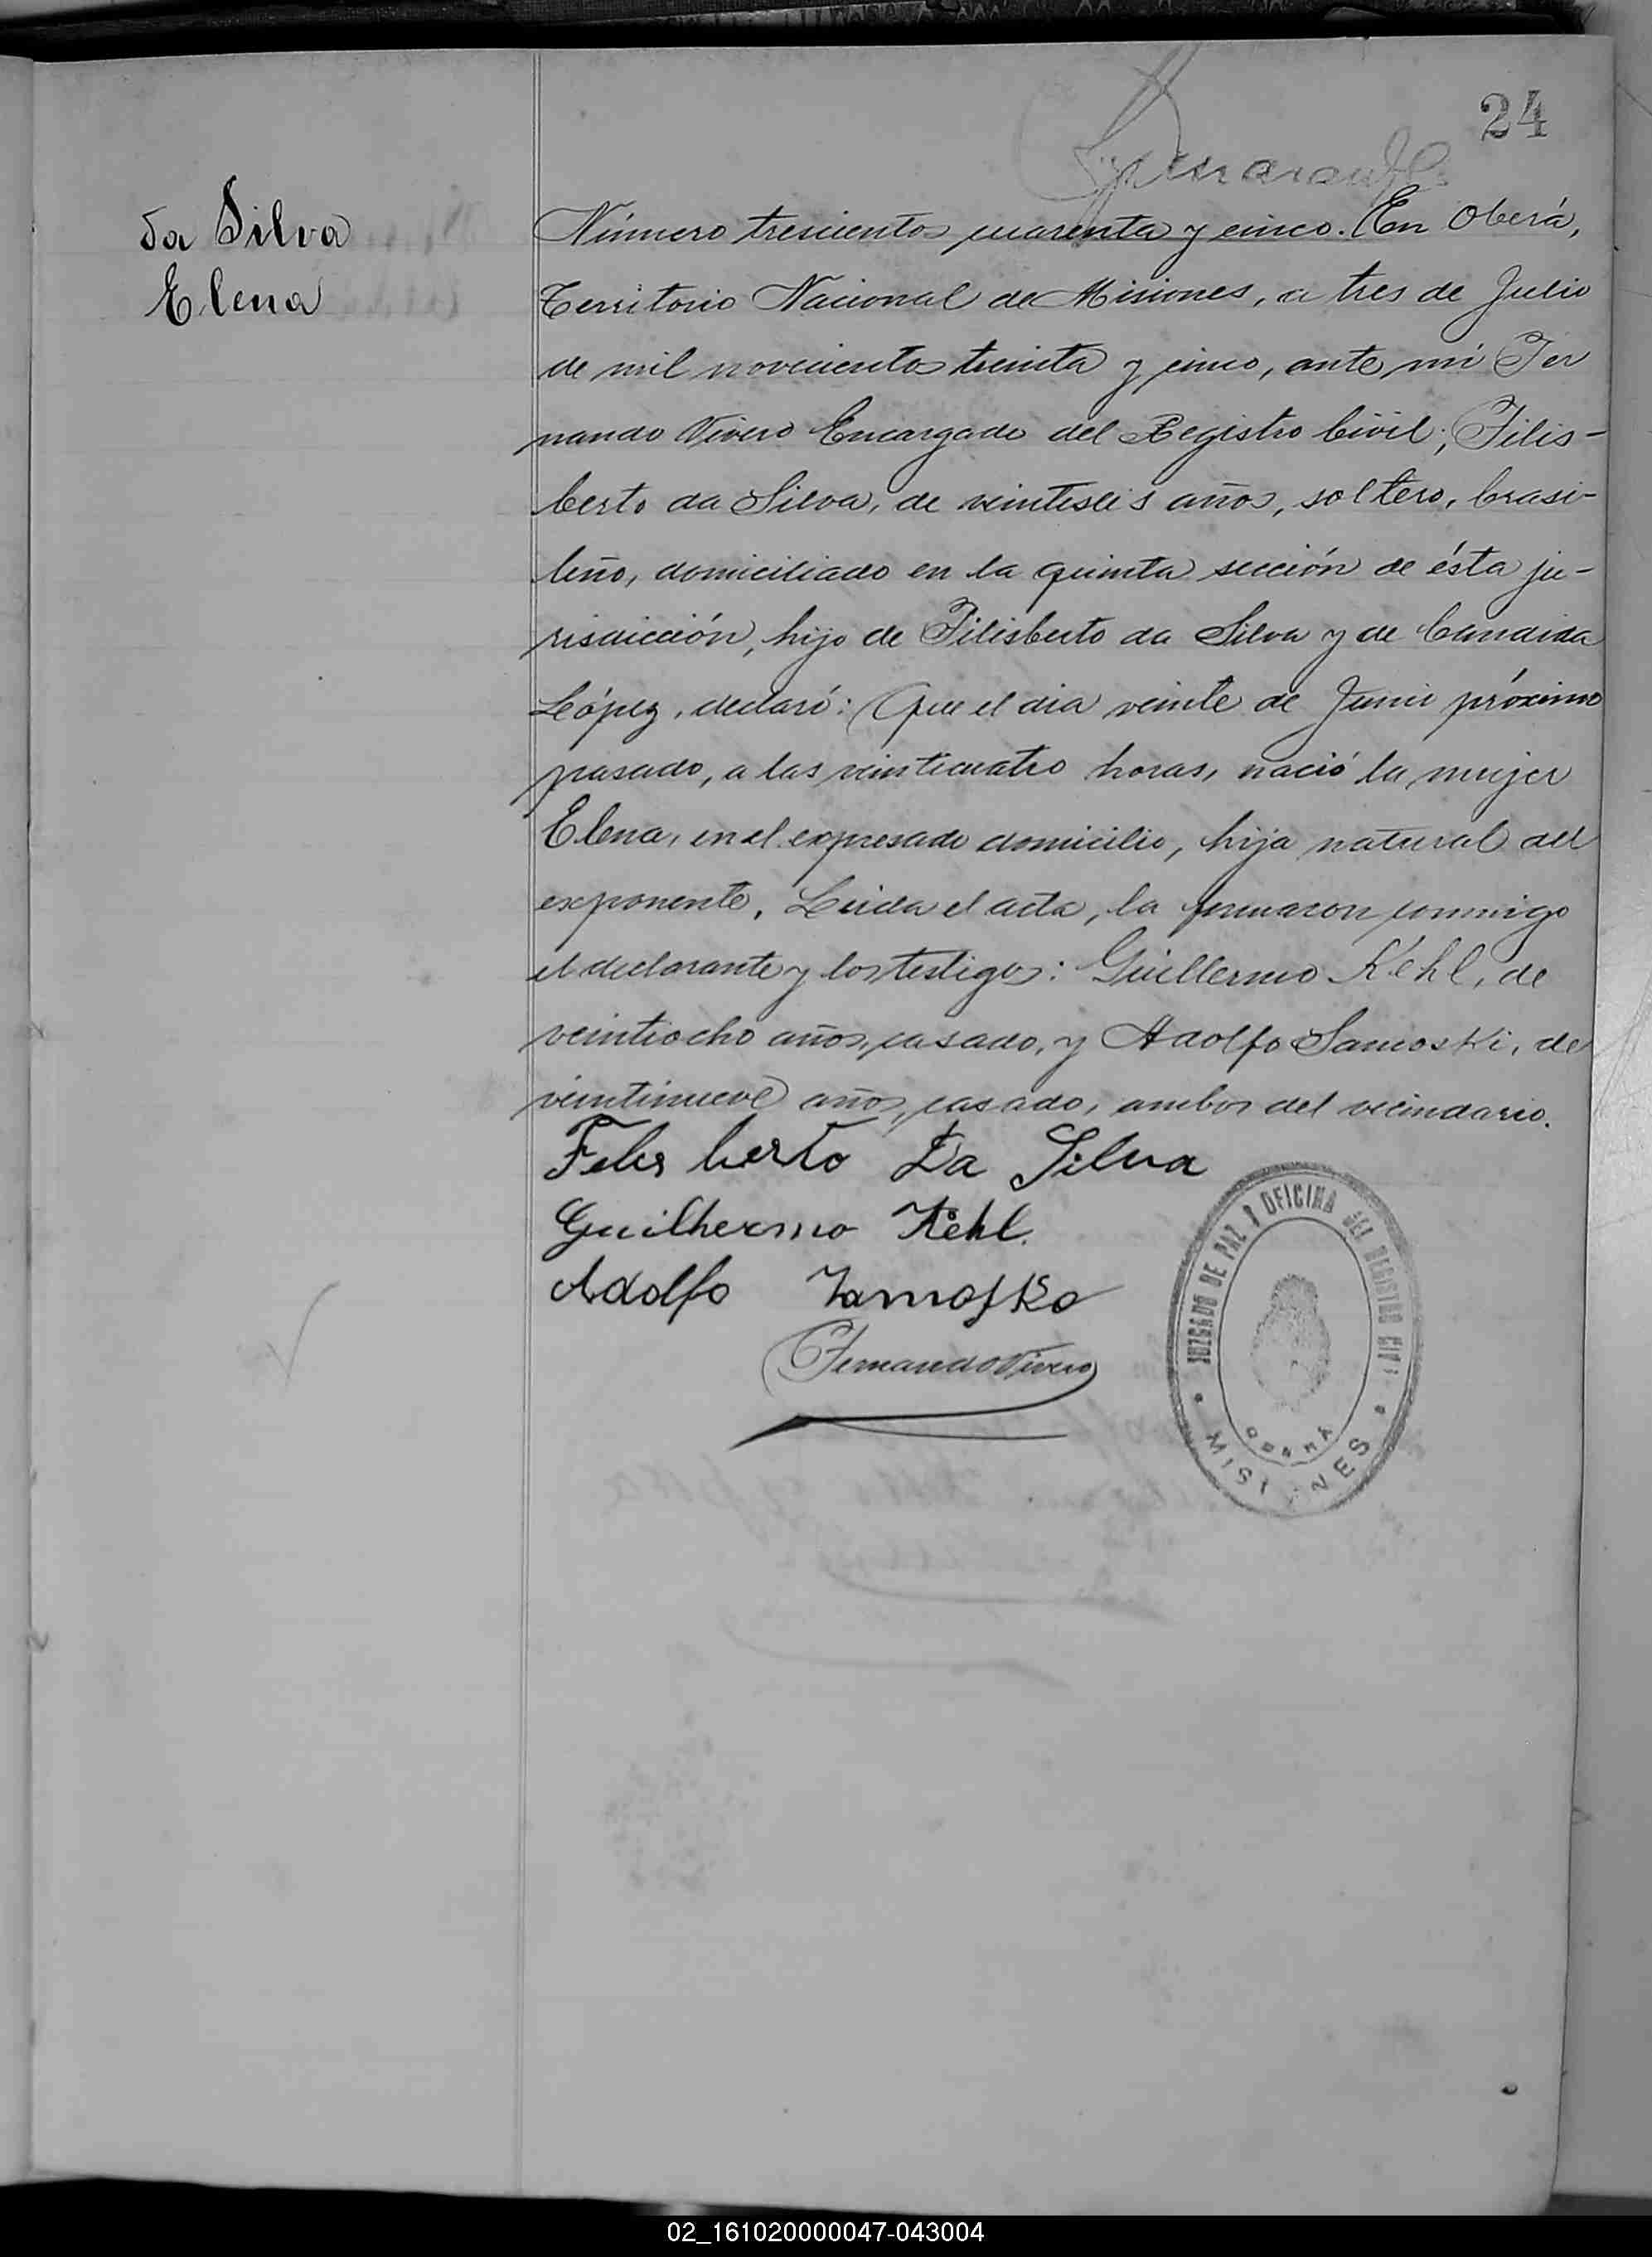 24
da Silva
Elena
Número trescientos cuarenta y cinco. En Oberá,
Territorio Nacional de Misiones, a tres de Julio
de mil novecientos treinta y cinco, ante mí Fer
nando Vivero Encargado del Registro Civil; Filis-
berto da Silva, de veintiseis años, soltero, brasi-
leño, domiciliado en la quinta sección de ésta ju-
risdicción, hijo de Filisberto da Silva y de Candida
López, declaró: Que el dia veinte de Junio próximo
pasado, a las veinticuatro horas, nació la mujer
Elena, en el expresado domicilio, hija natural del
exponente. Leida el acta, la firmaron conmigo
el declarante y los testigos: Guillermo Kehl, de
veintiocho años, casado, y Adolfo Samoski, de
veintinueve años, casado, ambos del vecindario.
Felis berto Da Silva
Guilhermo Kehl.
Adolfo Zamosko
Fernando Vivero
JUZGADO DE PAZ Y OFICINA DEL REGISTRO CIVI
OBERÁ
MISI NES
02_161020000047-043004